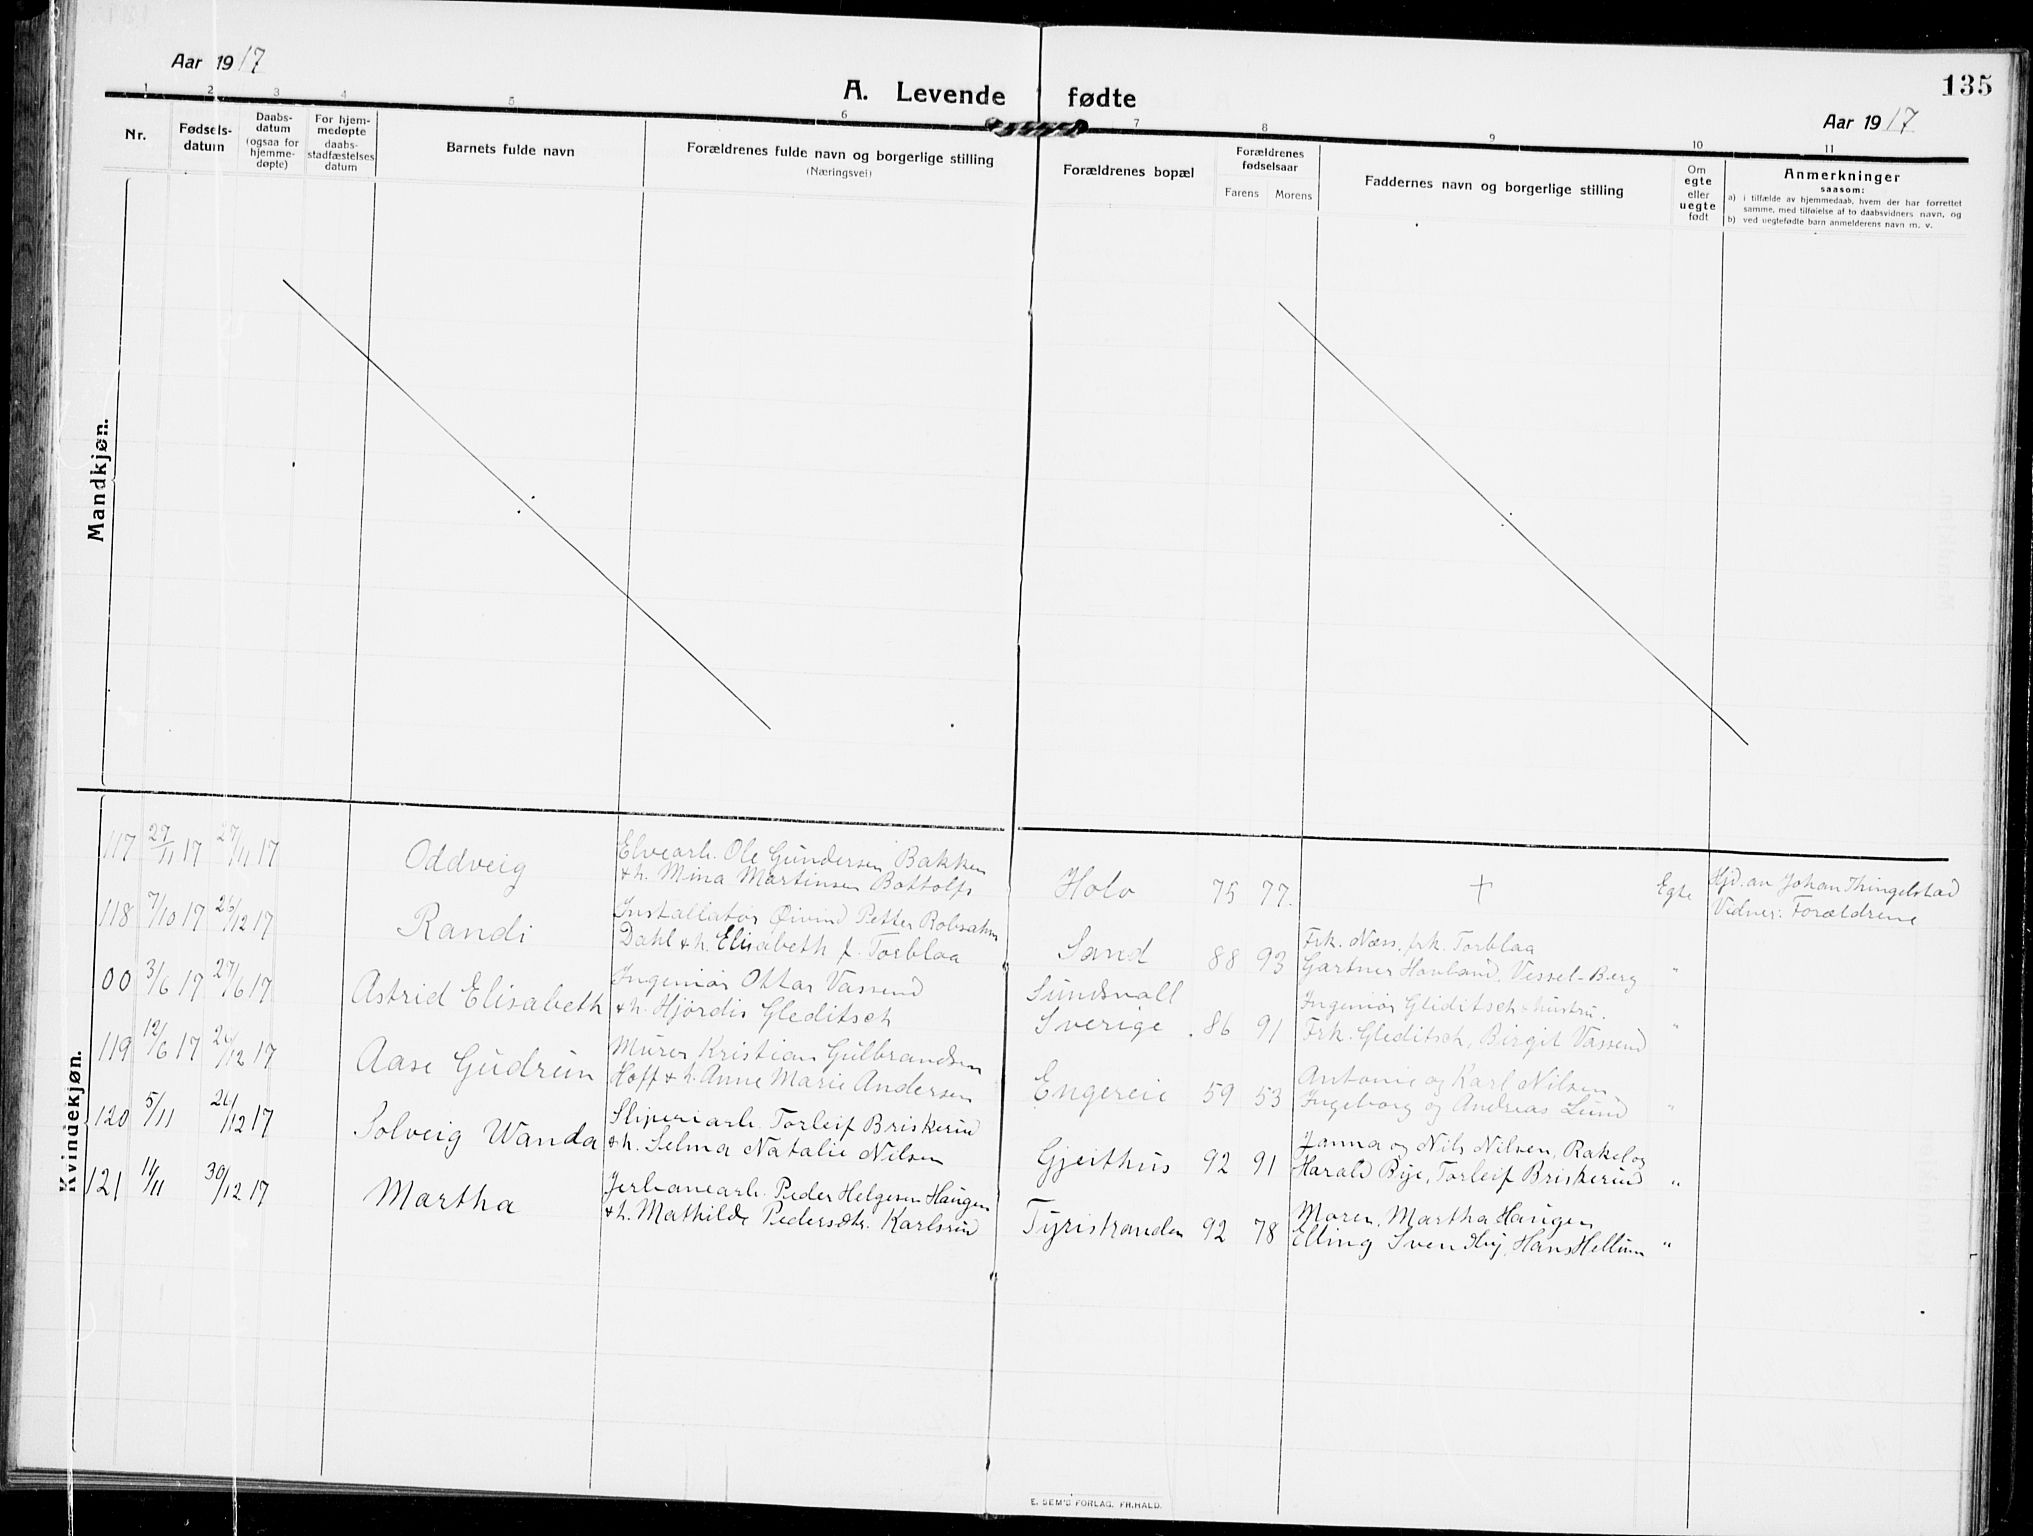 Aar 1917
A. Levende fødte
135
Aar 1917
1 2 3 4 5 6 7 8 9 10 11
Nr.
Fødsels-
datum
Daabs-
datum
(ogsaa for
hjemme-
døpte)
For hjem-
medøpte
daabs-
stadfæstelses
datum
Barnets fulde navn
Forældrenes fulde navn og borgerlige stilling
(Næringsvei)
Forældrenes bopæl
Forældrenes
fødselsaar
Farens Morens
Faddernes navn og borgerlige stilling
Om
egte
eller
uegte
født
Anmerkninger
saasom:
a) i tilfælde av hjemmedaab, hvem der har forrettet
samme, med tilføielse af to daabsvidners navn, og
b) ved uegtefødte barn anmelderens navn m. v.
Mandkjøn.
Kvindekjøn.
117 29/11 17 29/11 17 Oddveig
Elvearb. Ole Gundersen Bakken
& h. Mina Martinsen Bottolfs
Holv 75 77. + Egte
Hjd. av Johan Thingelstad
Vidner: Forældrene
118 7/10 17 26/12 17 Randi
Installatør Øivind Petter Robsahm
Dahl & h. Elisabeth f. Torblaa
Sand 88 93
Frk. Næss, frk. Torblaa
Gartner Hovland, Vessel-Berg "
00 3/6 17 27/6 17 Astrid Elisabeth
Ingeniør Ottar Vassend
& h. Hjördis Gleditsch
Sundsvall
Sverige. 86 91
Ingeniør Gliditsch & hustru.
Frk. Gleditsch, Birgit Vassend "
119 12/6 17 26/12 17 Aase Gudrun
Murer Kristian Gulbrandsen
Hoff & h. Anne Marie Andersen
Engereie 59 53
Antonie og Karl Nilsen
Ingeborg og Andreas Lund "
120 5/11 26/12 17 Solveig Wanda
Sliperiarb. Torleif Briskerud
& h. Selma Natalie Nilsen
Gjeithus 92 91
Janna og Nils Nilsen, Rakel og
Harald Bye, Torleif Briskerud "
121 14/11 30/12 17 Martha
Jerbanearb. Peder Helgesen Haugen
& h. Mathilde Pedersdtr. Karlsrud
Tyristranden 92 78
Moren, Martha Haugen
Elling Svendby, Hans Hellum "
E. SEM'S FORLAG. FR.HALD.